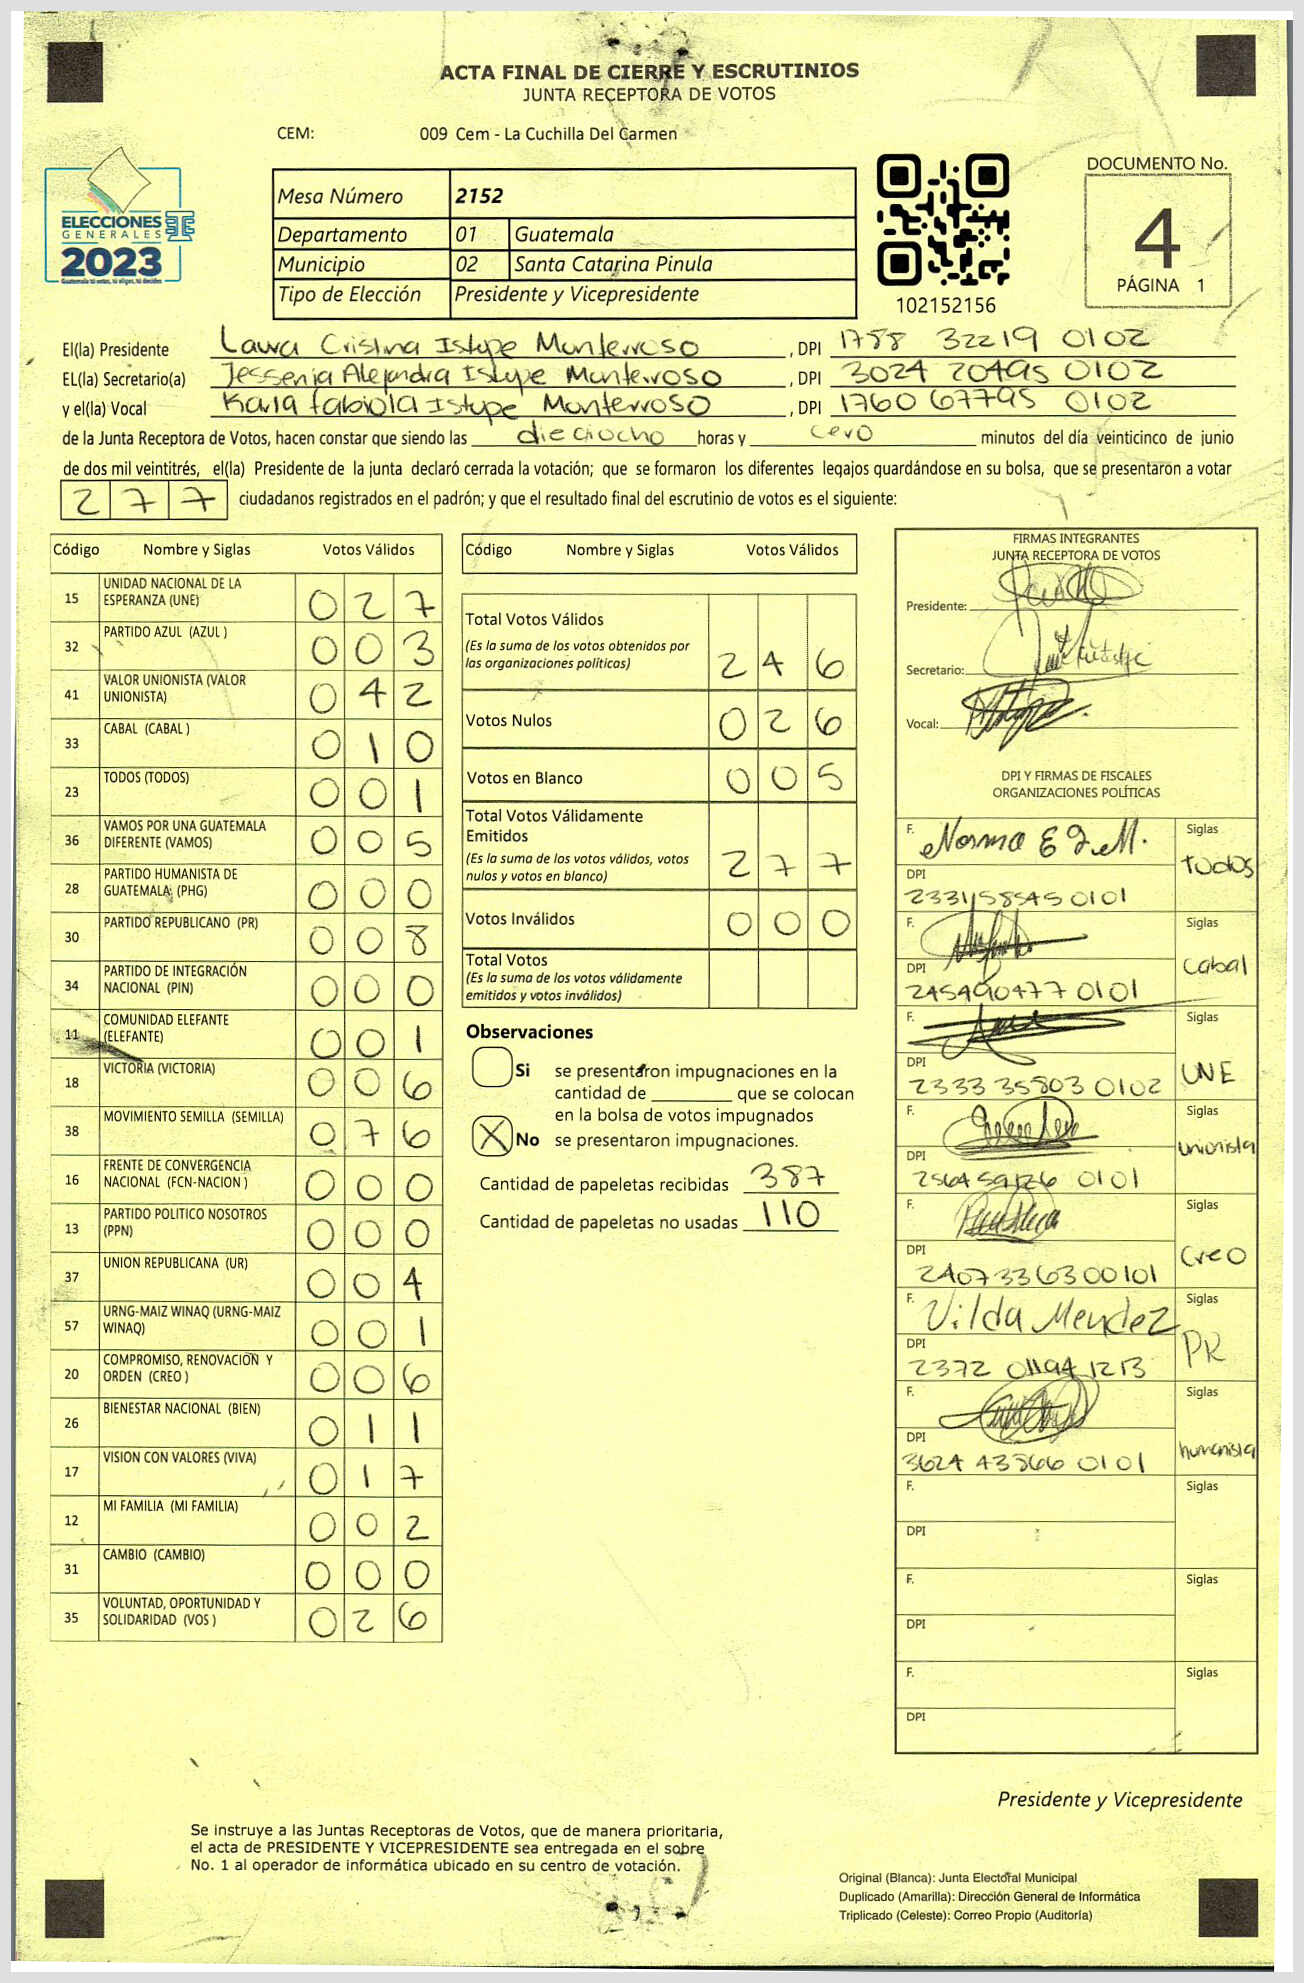 ACTA FINAL DE CIERRE Y ESCRUTINIOS
JUNTA RECEPTORA DE VOTOS
CEM: 009 Cem - La Cuchilla Del Carmen
ELECCIONES
GENERALES
2023
Guatemala tú votas, tú eliges, tú decides
Mesa Número 2152
Departamento 01 Guatemala
Municipio 02 Santa Catarina Pinula
Tipo de Elección Presidente y Vicepresidente
102152156
DOCUMENTO No.
4
PÁGINA 1
El(la) Presidente Laura Cristina Istupe Monterroso, DPI 1788 32219 0102
EL(la) Secretario(a) Jessenia Alejandra Istupe Monterroso, DPI 3024 20495 0102
y el(la) Vocal Karla fabiola Istupe Monterroso, DPI 1760 67795 0102
de la Junta Receptora de Votos, hacen constar que siendo las dieciocho horas y cero minutos del día veinticinco de junio
de dos mil veintitrés, el(la) Presidente de la junta declaró cerrada la votación; que se formaron los diferentes legajos guardándose en su bolsa, que se presentaron a votar
277 ciudadanos registrados en el padrón; y que el resultado final del escrutinio de votos es el siguiente:
Código Nombre y Siglas Votos Válidos
15 UNIDAD NACIONAL DE LA ESPERANZA (UNE) 027
32 PARTIDO AZUL (AZUL ) 003
41 VALOR UNIONISTA (VALOR UNIONISTA) 042
33 CABAL (CABAL ) 010
23 TODOS (TODOS) 001
36 VAMOS POR UNA GUATEMALA DIFERENTE (VAMOS) 005
28 PARTIDO HUMANISTA DE GUATEMALA (PHG) 000
30 PARTIDO REPUBLICANO (PR) 008
34 PARTIDO DE INTEGRACIÓN NACIONAL (PIN) 000
11 COMUNIDAD ELEFANTE (ELEFANTE) 001
18 VICTORIA (VICTORIA) 006
38 MOVIMIENTO SEMILLA (SEMILLA) 076
16 FRENTE DE CONVERGENCIA NACIONAL (FCN-NACION ) 000
13 PARTIDO POLITICO NOSOTROS (PPN) 000
37 UNION REPUBLICANA (UR) 004
57 URNG-MAIZ WINAQ (URNG-MAIZ WINAQ) 001
20 COMPROMISO, RENOVACION Y ORDEN (CREO ) 006
26 BIENESTAR NACIONAL (BIEN) 011
17 VISION CON VALORES (VIVA) 017
12 MI FAMILIA (MI FAMILIA) 002
31 CAMBIO (CAMBIO) 000
35 VOLUNTAD, OPORTUNIDAD Y SOLIDARIDAD (VOS ) 026
Código Nombre y Siglas Votos Válidos
Total Votos Válidos
(Es la suma de los votos obtenidos por las organizaciones políticas) 246
Votos Nulos 026
Votos en Blanco 005
Total Votos Válidamente Emitidos
(Es la suma de los votos válidos, votos nulos y votos en blanco) 277
Votos Inválidos 000
Total Votos
(Es la suma de los votos válidamente emitidos y votos inválidos)
Observaciones
Si se presentaron impugnaciones en la
cantidad de ________ que se colocan
en la bolsa de votos impugnados
X No se presentaron impugnaciones.
Cantidad de papeletas recibidas 387
Cantidad de papeletas no usadas 110
FIRMAS INTEGRANTES
JUNTA RECEPTORA DE VOTOS
Presidente:
Secretario:
Vocal:
DPI Y FIRMAS DE FISCALES
ORGANIZACIONES POLÍTICAS
F. Norma E J. M. Siglas TODOS
DPI 233115854 5 0101
F. Siglas Cabal
DPI 245490477 0101
F. Siglas UNE
DPI 2333 35803 0102
F. Siglas unionista
DPI 2564 59126 0101
F. Siglas Creo
DPI 2407336300101
F. Vilda Mendez Siglas PR
DPI 2372 01194 1213
F. Siglas humanista
DPI 3624 43566 0101
F. Siglas
DPI
F. Siglas
DPI
F. Siglas
DPI
Presidente y Vicepresidente
Se instruye a las Juntas Receptoras de Votos, que de manera prioritaria,
el acta de PRESIDENTE Y VICEPRESIDENTE sea entregada en el sobre
No. 1 al operador de informática ubicado en su centro de votación.
Original (Blanca): Junta Electoral Municipal
Duplicado (Amarilla): Dirección General de Informática
Triplicado (Celeste): Correo Propio (Auditoría)